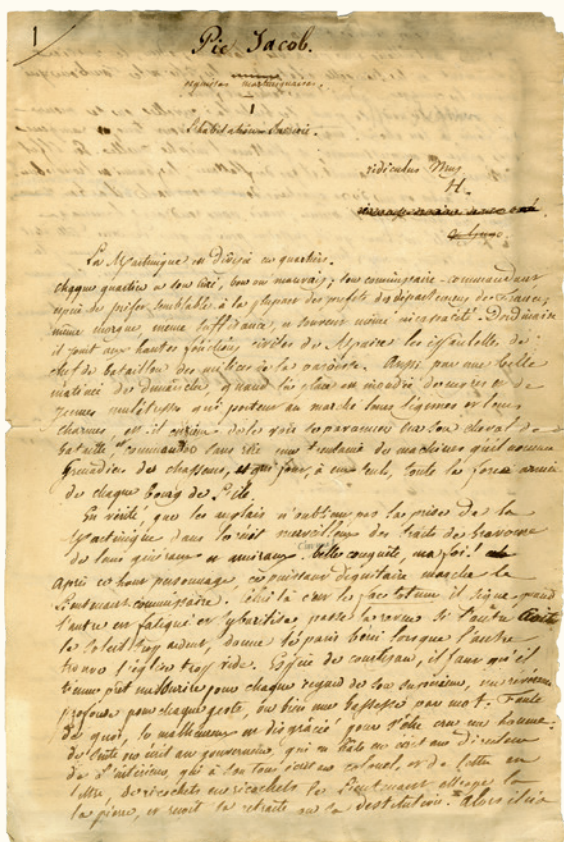 1
Pie Jacob.
esquisses martiniquaises.
I
L'habitation
ridiculus Mus
H.
La Martinique est divisée en quartiers.
chaque quartier a son curé, bon ou mauvais; son commissaire-commandant
espèce de préfet semblable à la plupart des préfets des départemens de France;
même morgue, même suffisance, et souvent même incapacité. D'ordinaire
il joint aux hautes fonctions civiles de Maire les épaulettes de
chef de bataillon des milices de la paroisse. Aussi par une belle
matinée de dimanche, quand la place est inondée de nègres et de
jeunes mulâtresses qui portent au marché leurs légumes et leurs
charmes, est-il curieux de le voir se pavaner sur son cheval de
bataille, et commander sans rire une trentaine de machines qu'il nomme
Grenadiers de chasseurs, et qui font, à eux seuls, toute la force armée
de chaque bourg de l'île.
En vérité que les anglais n'oublient pas la prise de la
Martinique dans le récit merveilleux des traits de bravoure
de leurs généraux et amiraux. belle conquête, ma foi!
Après ce haut personnage, ce puissant dignitaire marche le
Lieutenant-commissaire. celui-là c'est le factotum, il signe quand
l'autre est fatigué et passe la revue si l'autre
le soleil trop ardent, donne le pain béni lorsque l'autre
trouve l'église trop vide. Espèce de courtisan, il faut qu'il
tienne prêt un sourire pour chaque regard de son supérieur, une révérence
profonde pour chaque geste, ou bien une bassesse par mot. Faute
de quoi, le malheureux est disgracié pour s'être cru un homme.
de suite on écrit au gouverneur, qui en hâte en écrit au directeur
de l'intérieur, qui à son tour écrit au colonel, et de lettre en
lettre, de ricochets en ricochets le Lieutenant attrape la
la pierre, et reçoit sa retraite ou sa destitution. Alors il